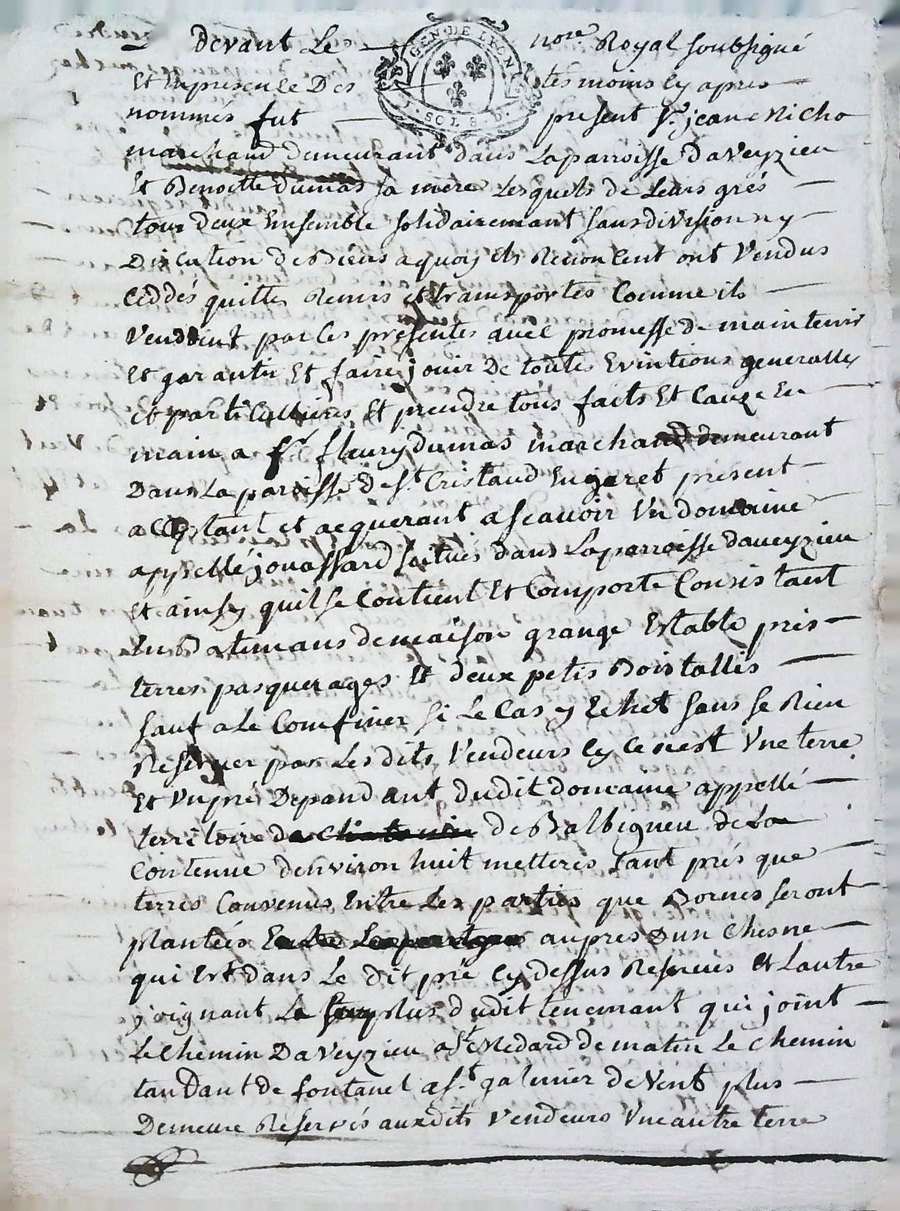 GEN. DE LYON
SOLS. D.
devant Le nore Royal soubsigné
Et En presence Des tesmoins Cy apres
nommés fut present Sr. jean Nicho
marchand demeurant dans La parroisse Daveyzieu
Et Benoitte dumas sa mere Lesquels de Leurs grés
tous deux Ensemble solidairement sans division ny
Discution de Biens a quoy ils Renoncent ont Vendus
Ceddés quittes Remis et transportes Comme ils
Vendent par Ces presentes avec promesse de maintenir
Et garantir Et faire jouir de toutes Evintions generalles
Et particullieres Et prendre tous faits Et Cauze En
main a Sr. fleury dumas marchand demeurant
Dans La paroisse de St. Cristaud En jaret present
acceptant et acquerant ascavoir Un domaine
appellé jouassard scitué dans La parroesse daveyzieu
Et ainsy quil se Contient Et Comporte Consistant
En Batimans de maison grange Estable prés
terres pasquerages Et deux petis Bois tallis
sauf a Le Comfiner si Le Cas y Echet sans se Rien
Reserver par Les dits Vendeurs Cy ce nest Vne terre
Et Vn pré Depandant dudit domaine appellé
territoire de Balbigneu de La
Contenue denviron huit metteres tant prés que
terres Convenus Entre Les parties que Bornes seront
plantées aupres Dun Chesne
qui Est dans Le dit pré Cy dessus Reservés Et Lautre
joignant Le surplus dudit tenemant qui joint
Le Chemin Daveyzieu a St. Medard de matin Le Chemin
tandant de fontanel a St. galmier de Vent plus
Demeure Reservés auxdits Vendeurs Vne autre terre